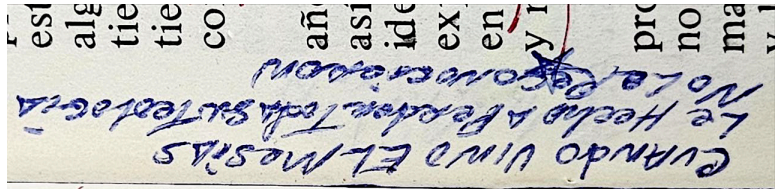 est
alg
tie
tie
co
añ
así
ide
ex
en
y
pro
no
ma
CUANDO VINO EL MESiAS
LE Hecho A Perder Toda Su Teología
No Le ReConocieron